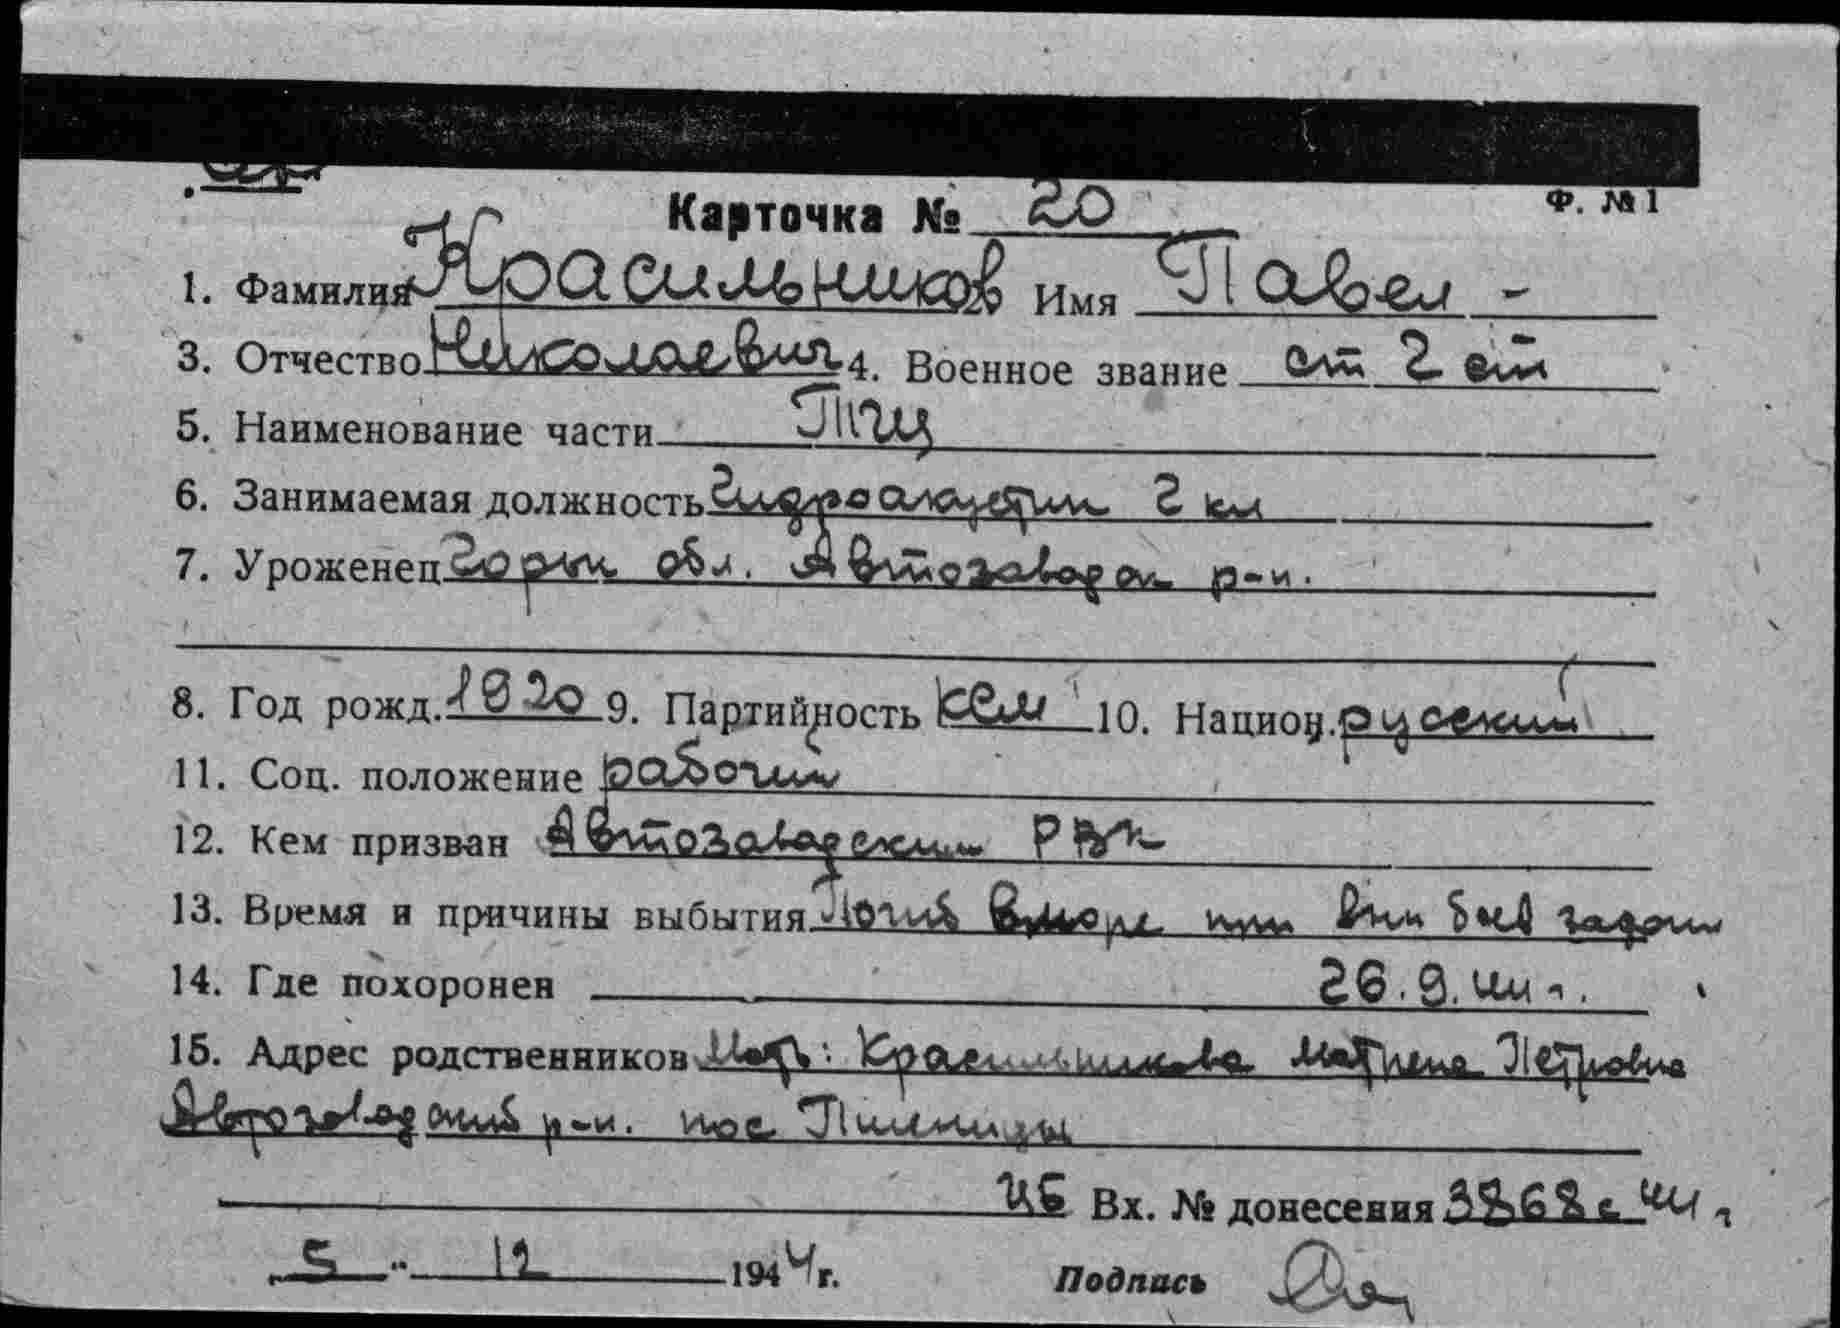 Карточка № 20
Ф. №1
1. Фамилия Красильников Имя Павел -
3. Отчество Николаевич 4. Военное звание ст 2 ст
5. Наименование части ТЩ
6. Занимаемая должность Гидроакустик 2 кл
7. Уроженец Горьк обл. Автозаводск р-н.
8. Год рожд. 1920 9. Партийность ксм 10. Национ. русский
11. Соц. положение рабочий
12. Кем призван Автозаводским РВК
13. Время и причины выбытия Погиб в море при вып боев задачи
14. Где похоронен 26.9.44 г.
15. Адрес родственников Мать: Красильникова Матрена Петровна
Автозаводский р-н. пос Пшеницы
Вх. № донесения 3868с 44 г
5 " 12 1944 г.
Подпись